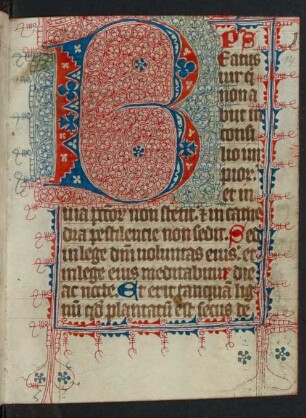 B ps
eatus
uir q̄
non a
biit in
consi
lio im
pior̄.
et in
uia pc̄cor̄ non stetit. ⁊ in cathe
dra pestilencie non sedit. Sed
in lege dn̄i voluntas eius. et
in lege eius meditabitur die
ac nocte. Et erit tanquā lig
nū qd̄ plantatū est secus de